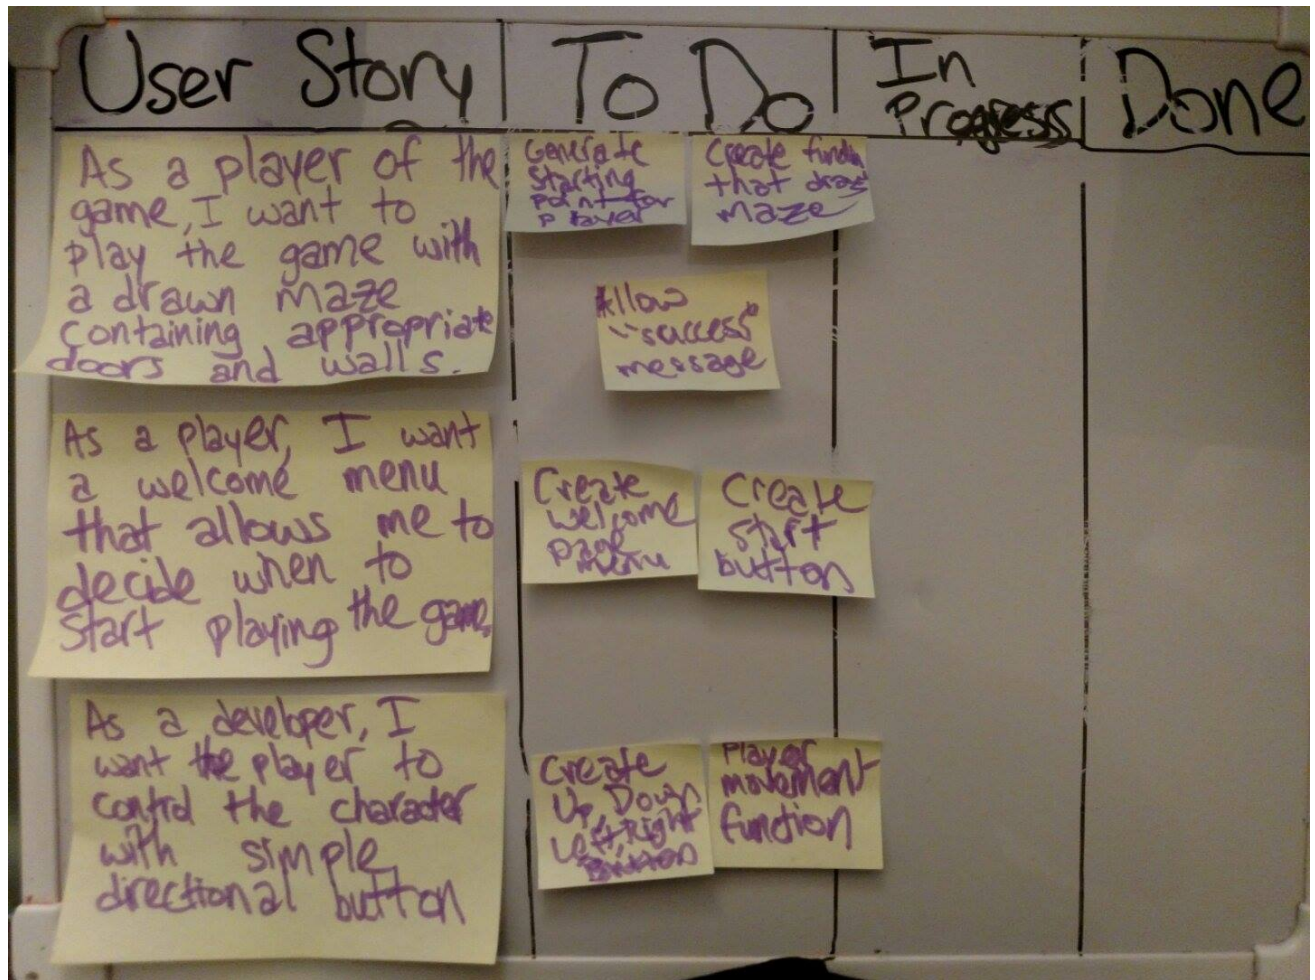 User Story
To Do
In
Progress
Done
As a player of the
game, I want to
play the game with
a drawn maze
containing appropriate
doors and walls.
Generate
starting
point for
player
Create
that draws
maze
Allow
"success"
message
As a player, I want
a welcome menu
that allows me to
decide when to
start playing the game.
Create
welcome
page
menu
Create
start
button
As a developer, I
want the player to
control the character
with simple
directional button
Create
Up, Down
Left, Right
Button
Player
movement
function